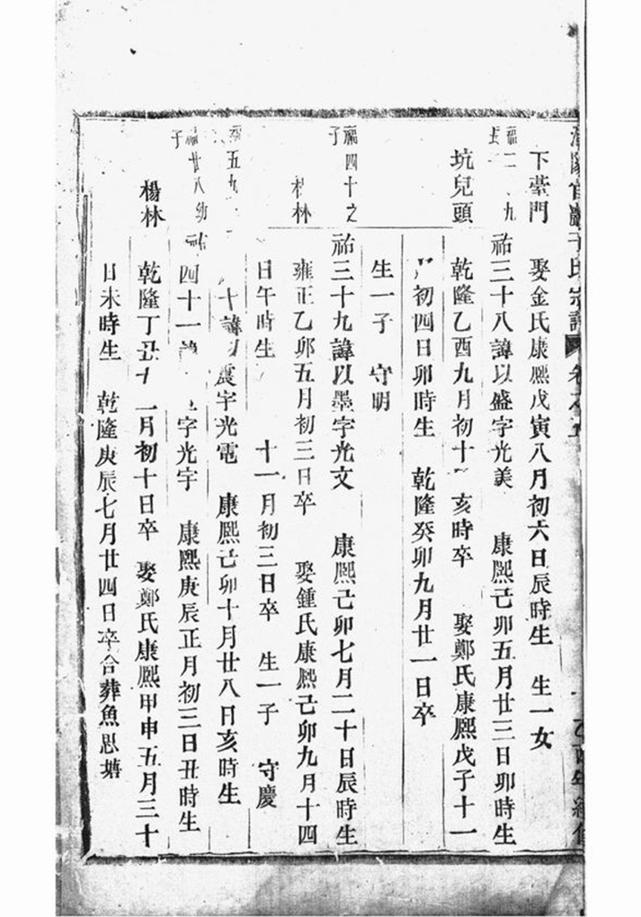 氏宗譜 卷之
下臺門 娶金氏康熙戊寅八月初六日辰時生 生一女
福二 九 長 祐三十八諱以盛字光美 康熙己卯五月廿三日卯時生
坑兒頭 乾隆乙酉九月初十 亥時卒 娶鄭氏康熙戊子十一
初四日卯時生 乾隆癸卯九月廿一日卒
生一子 守明
福四十之子 祐三十九諱以墨字光文 康熙己卯七月二十日辰時生
林 雍正乙卯五月初三日卒 娶鍾氏康熙己卯九月十四
日午時生 十一月初三日卒 生一子 守慶
五九 十諱以震字光電 康熙己卯十月廿八日亥時生
福廿八幼子 祐四十一諱 字光宇 康熙庚辰正月初三日丑時生
楊林 乾隆丁丑十一月初十日卒 娶鄭氏康熙甲申五月三十
日未時生 乾隆庚辰七月廿四日卒合葬魚思塘